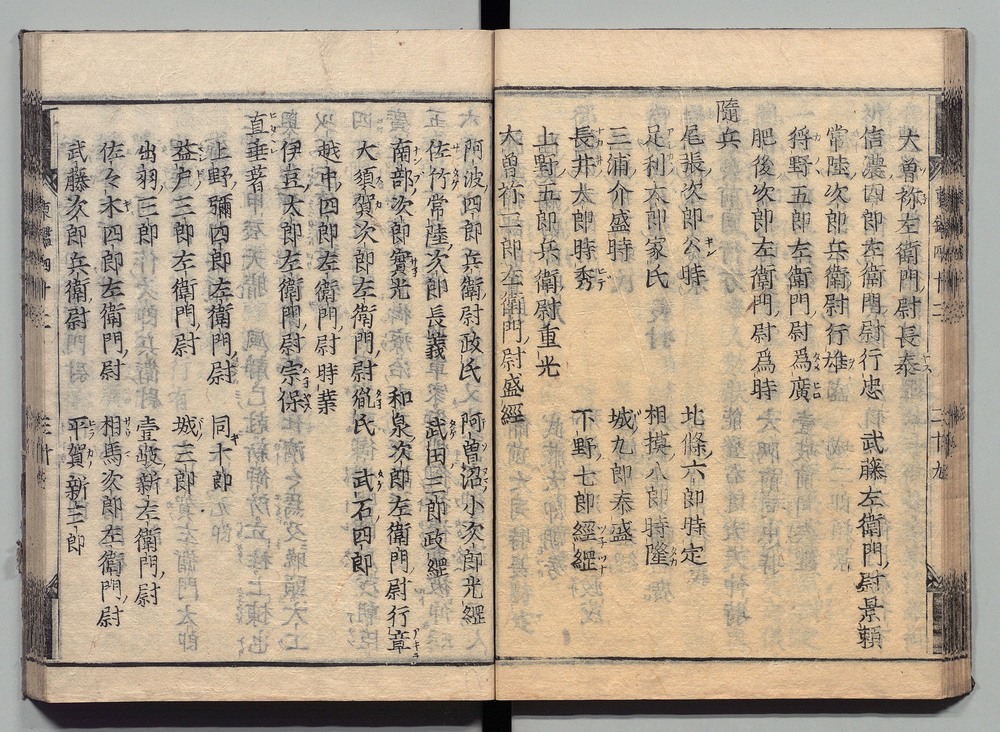 大曽祢左衛門尉長泰
信濃四郎左衛門尉行忠　武藤左衛門尉景頼
常陸次郎兵衛尉行雄
狩野五郎左衛門尉爲廣
肥後次郎左衛門尉爲時
隨兵
尾張次郎公時　北條六郎時定
足利太郎家氏　相摸八郎時隆
三浦介盛時　城九郎泰盛
長井太郎時秀　下野七郎經綱
上野五郎兵衛尉重光
大曽祢二郎左衛門尉盛經
阿波四郎兵衛尉政氏　阿曽沼小次郎光經
佐竹常陸次郎長義　武田三郎政經
南部次郎實光　和泉次郎左衛門尉行章
大須賀次郎左衛門尉胤氏　武石四郎
越中四郎左衛門尉時業
伊豆太郎左衛門尉宗保
直垂著
上野彌四郎左衛門尉　同十郎
益戸三郎左衛門尉　城三郎
出羽三郎　壹岐新左衛門尉
佐々木四郎左衛門尉　相馬次郎左衛門尉
武藤次郎兵衛尉　平賀新三郎